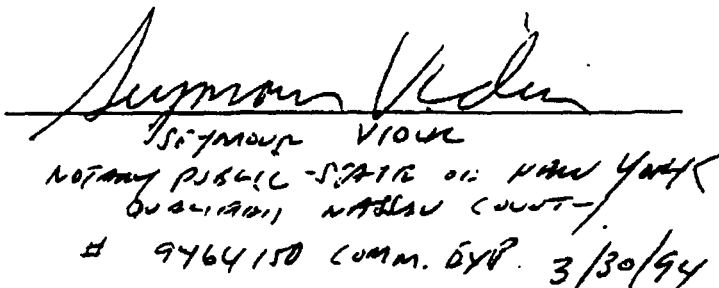 Seymour
SEYMOUR
NOTARY PUBLIC - STATE OF NEW YORK
QUALIFIED NASSAU COUNTY
# 9464150 COMM. EXP. 3/30/94